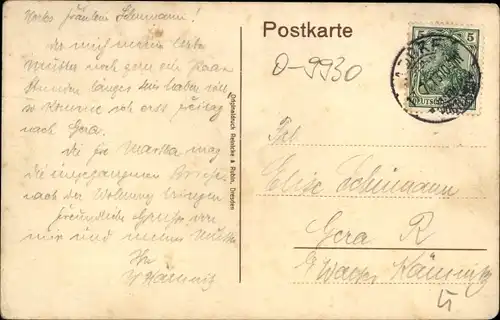 Postkarte
Wertes Fräulein Schumann!
Da mich meine liebe
Mutter noch gern ein paar
Stunden länger hier haben will
so komme ich erst Freitag
nach Gera.
die Martha mag
die eingegangenen Briefe
nach der Wohnung bringen
Freundliche Grüße von
mir und meiner Mutter
Ihr
Originaldruck Reinicke & Rubin, Dresden
O-9930
5 5
DEUTSCHES
Frl.
Elise Schumann
Gera R